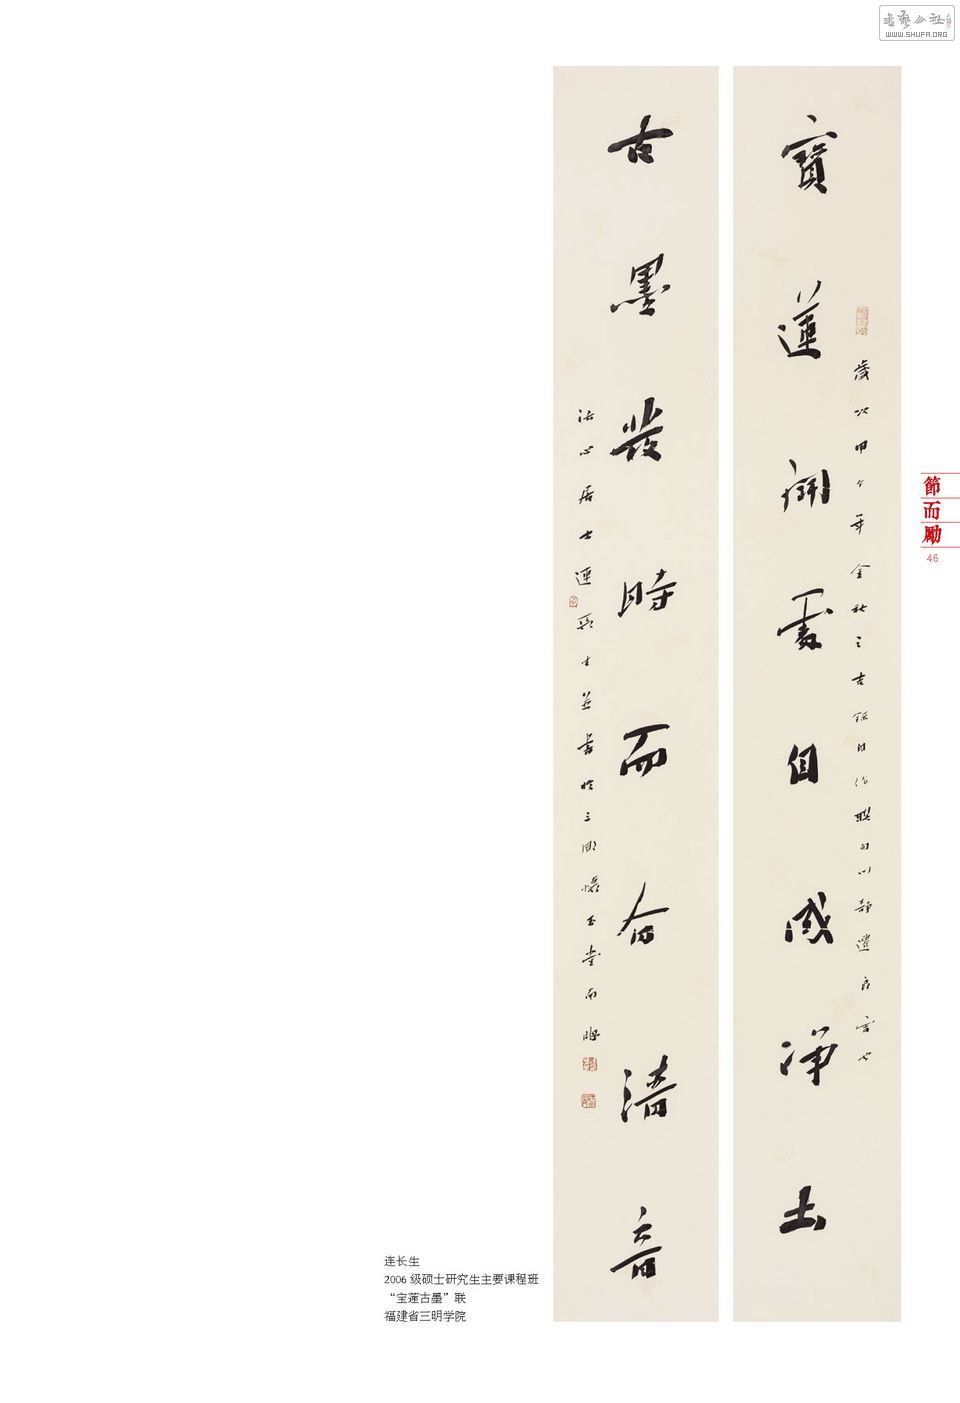 书艺公社
WWW.SHUFA.ORG
寶蓮開處自成淨土
歲次甲午年金秋之吉
聯句以靜
古墨發時而合清音
法心居士連長生並書於三明懷玉堂南
節而勵
46
连长生
2006 级硕士研究生主要课程班
“宝莲古墨”联
福建省三明学院